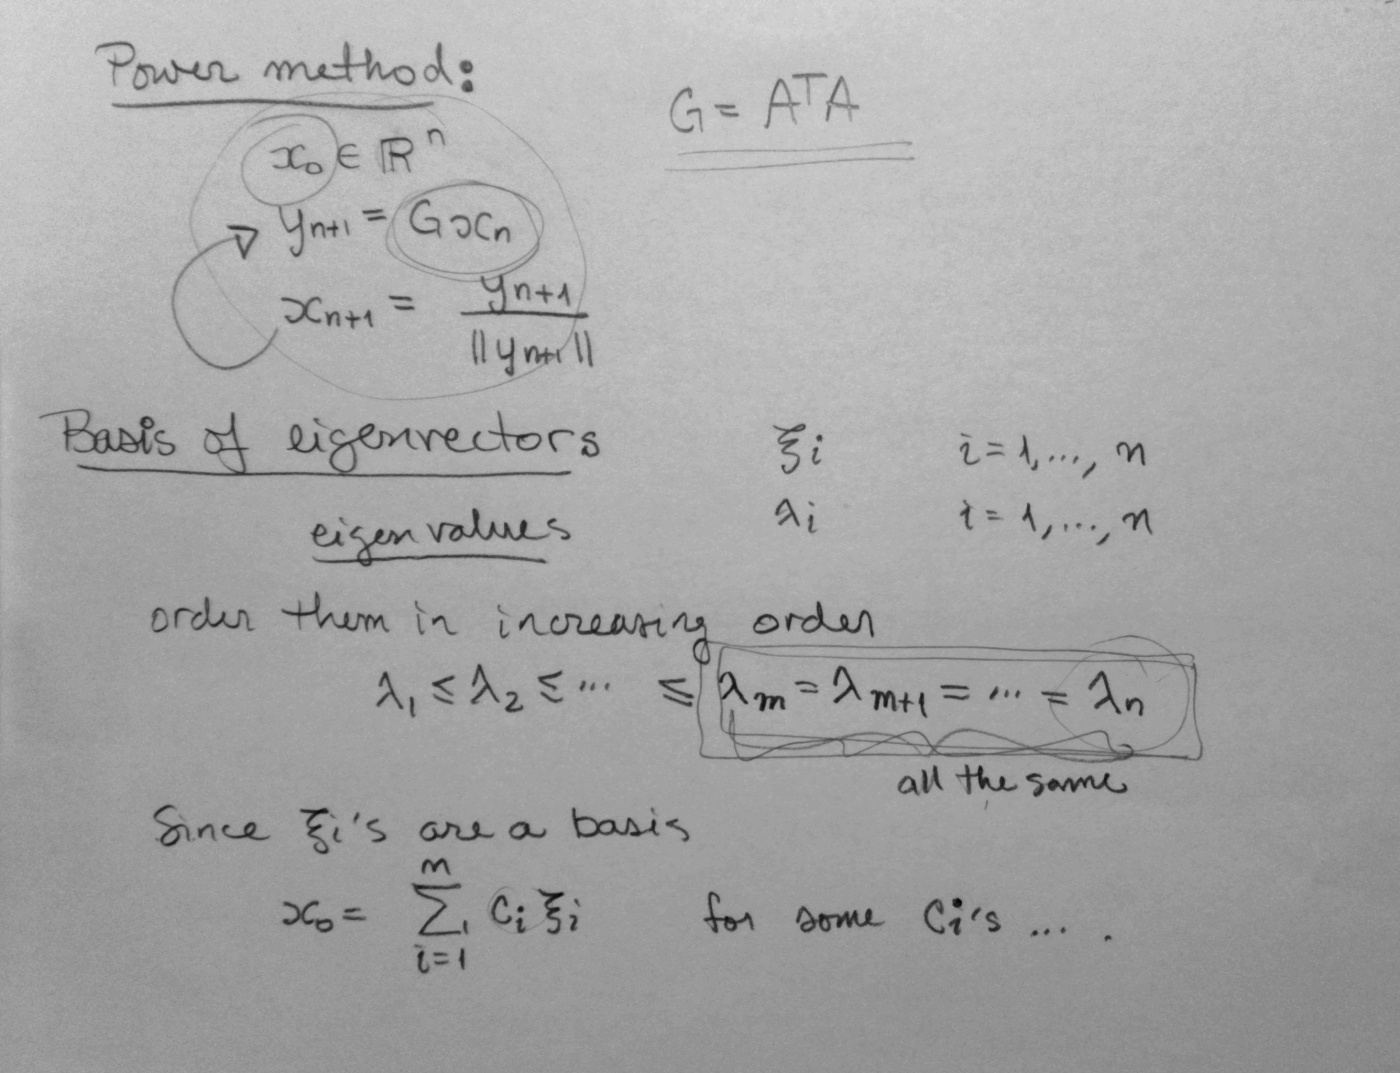 Power method:
G = AᵀA
x₀ ∈ ℝⁿ
yₙ₊₁ = Gxₙ
xₙ₊₁ = yₙ₊₁ / ||yₙ₊₁||
Basis of eigenvectors ξi i = 1, ..., n
eigenvalues λi i = 1, ..., n
order them in increasing order
λ₁ ≤ λ₂ ≤ ... ≤ λm = λm+1 = ... = λn
all the same
Since ξi's are a basis
x₀ = ∑ᵢ₌₁ⁿ ci ξi for some ci's ... .